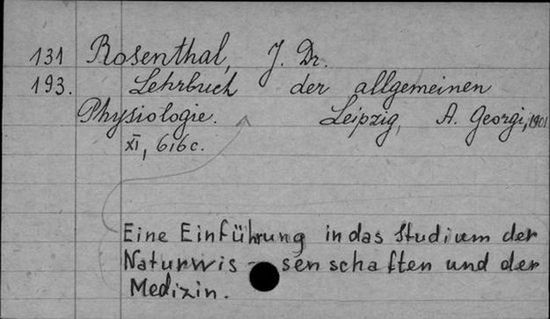 131 Rosenthal, J. Dr.
193. Lehrbuch der allgemeinen
Physiologie. Leipzig, A. Georgi, 1901
XI, 616 c.
Eine Einführung in das Studium der
Naturwis - senschaften und der
Medizin.